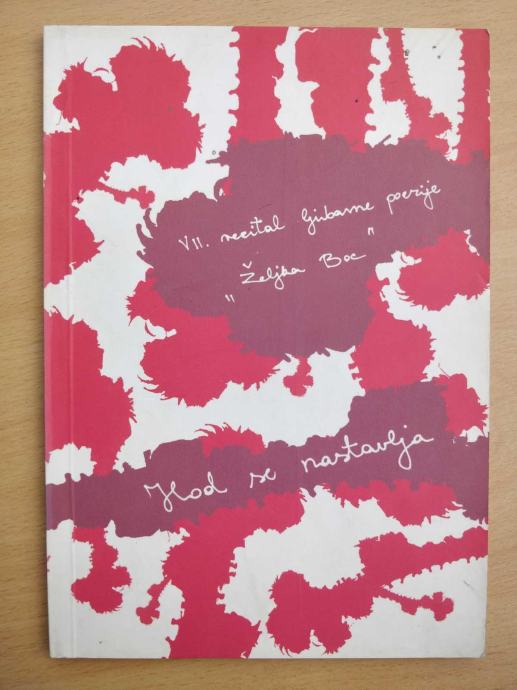 VII. recital ljubavne poezije
"Željka Boc"
Hod se nastavlja